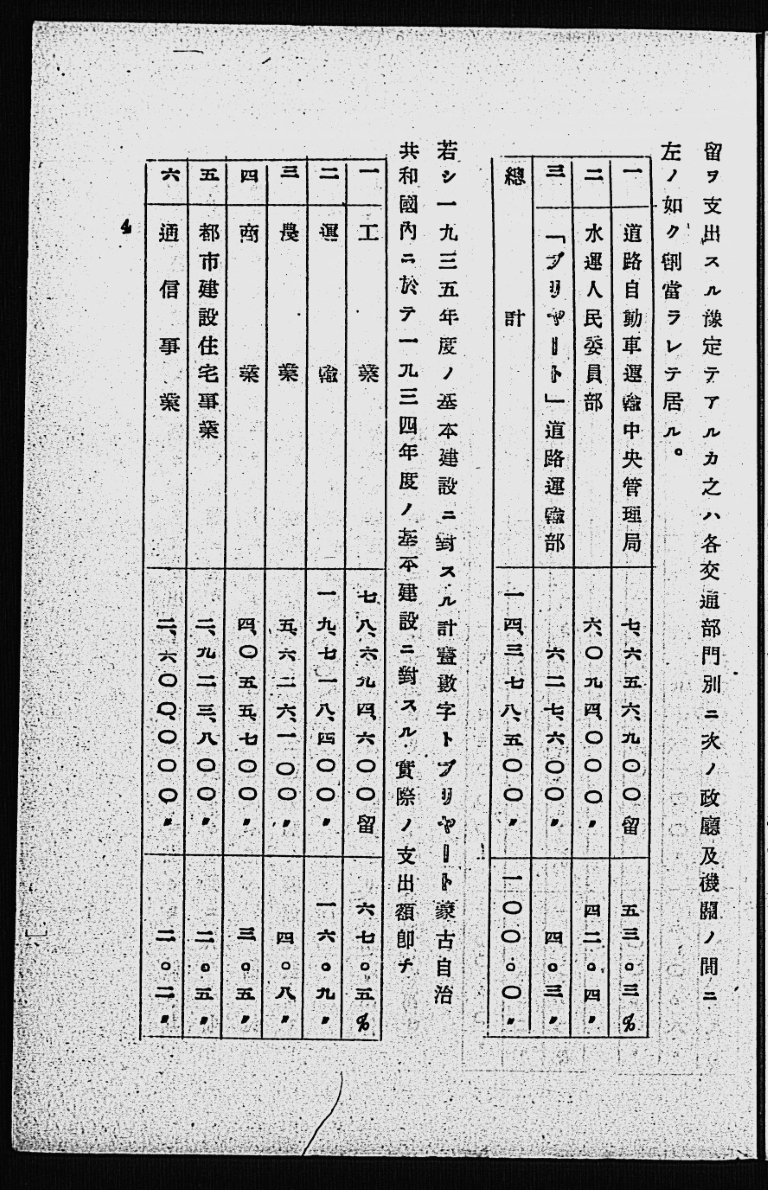 留ヲ支出スル豫定テアルカ之ハ各交通部門別ニ次ノ政廳及機關ノ間ニ
左ノ如ク割當ラレテ居ル。
一 道路自動車運輸中央管理局 七、六五六、九〇〇留 五三。三%
二 水運人民委員部 六、〇九四、〇〇〇〃 四二。四〃
三 「ブリヤート」道路運輸部 六二七、六〇〇〃 四。三〃
總計 一四、三七八、五〇〇〃 一〇〇。〇〃
若シ一九三五年度ノ基本建設ニ對スル計畫數字トブリヤート蒙古自治
共和國內ニ於テ一九三四年度ノ基本建設ニ對スル實際ノ支出額卽チ
一 工業 七八、六九四、六〇〇留 六七。五%
二 運輸 一九、七一八、四〇〇〃 一六。九〃
三 農業 五、六二六、一〇〇〃 四。八〃
四 商業 四、〇五五、七〇〇〃 三。五〃
五 都市建設住宅事業 二、九二三、八〇〇〃 二。五〃
六 通信事業 二、六〇〇、〇〇〇〃 二。二〃
4